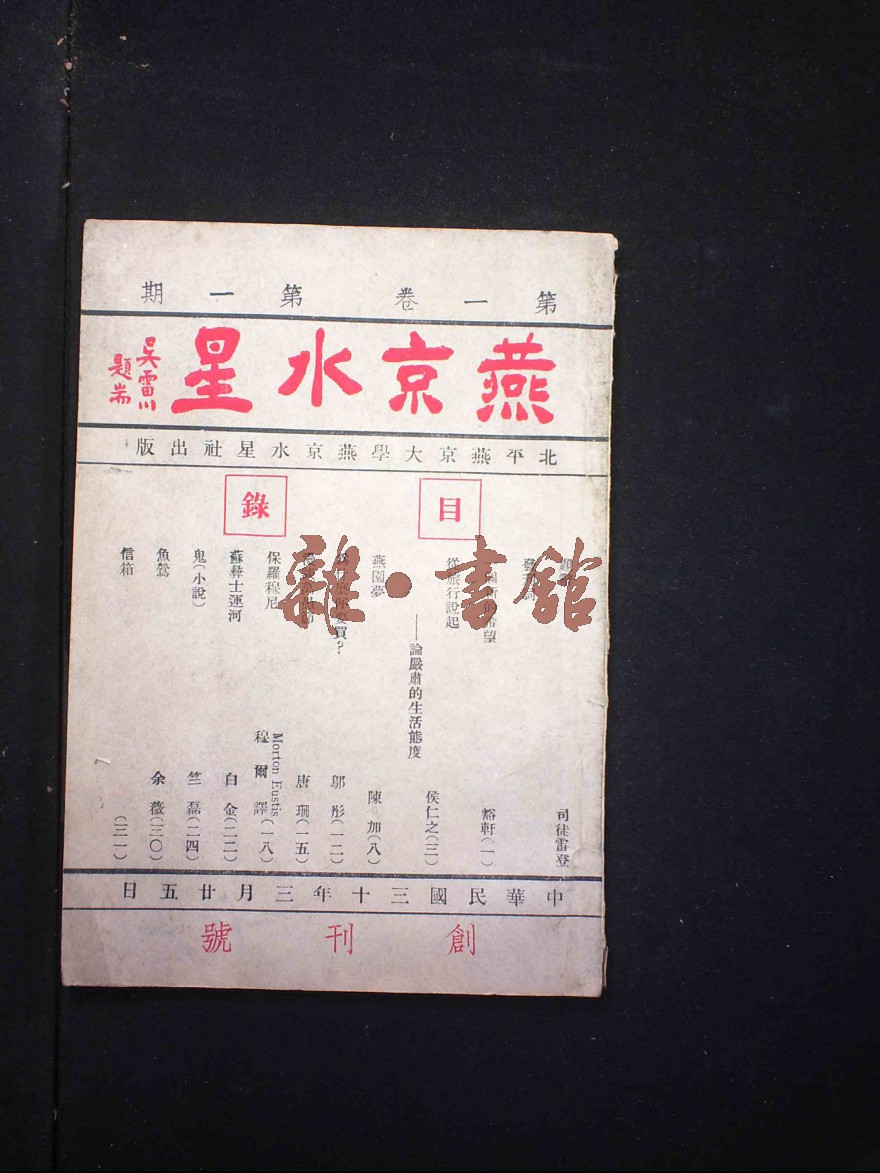 第一卷 第一期
燕京水星
吳雷川
題耑
北平燕京大學燕京水星社出版
目錄
司徒雷登
發刊
新的希望 豁軒(一)
從旅行說起
——論嚴肅的生活態度 侯仁之(三)
燕園夢 陳加(八)
你要買? 鄔彤(一二)
唐珊(一五)
保羅穆尼 Morton Eustis
穆爾譯(一八)
蘇彝士運河 白金(二二)
鬼(小說) 竺磊(二四)
魚鶩 余薇(三〇)
信箱 (三一)
中華民國三十年三月廿五日
創刊號
雜·書館